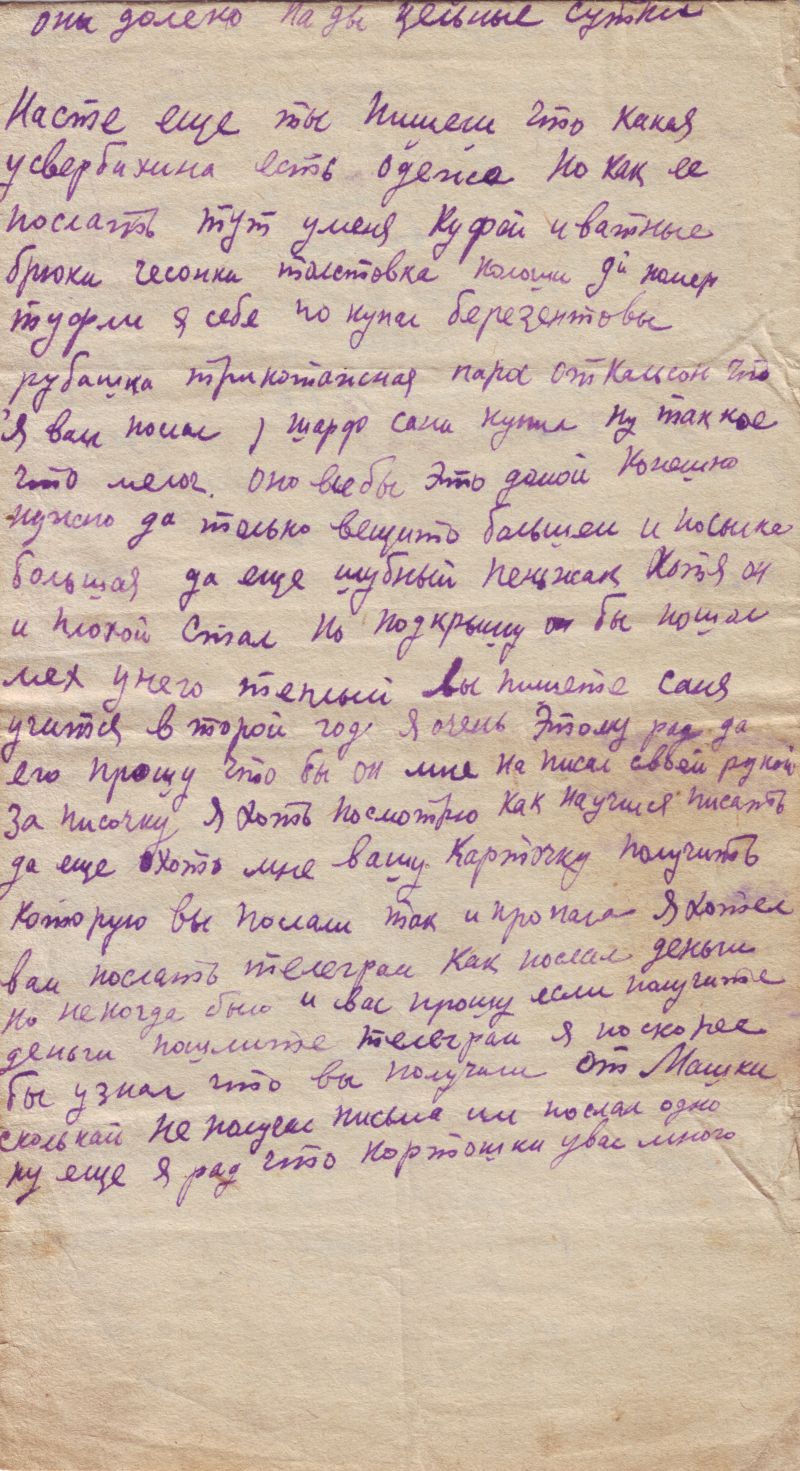 они долено на ды цельные сутки
Насте еще ты Пишеш что какая
усвербихина есть одежа но как ее
послать тут уменя Куфай и ватные
брюки чесонки толстовка калоши номер
туфли я себе по купил березентовы
рубашка трикотажная пара от кальсон что
Я вам послал шарф сани купил ну так кое
что мелоч. оно все бы Это домой Конешно
нужно да только вещито большеи и посылка
большая да еще шубный пеньжак Хотя он
и плохой стал но подкрышу бы пошол
мех у него теплый вы пишете саня
учится в торой год я очень Этому рад да
его прошу что бы он мне на писал своей рукой
За писочку Я хоть посмотрю как научился писать
да еще охота мне вашу Карточку получить
Которую вы послали так и пропала Я хотел
вам послать телеграм Как послал деньги
но не когда было и вас прошу если получите
деньги пошлите телеграм я поскорее
бы узнал что вы получили от Машки
сколькай не получал письма им послал одно
ну еще я рад что картошки увас много